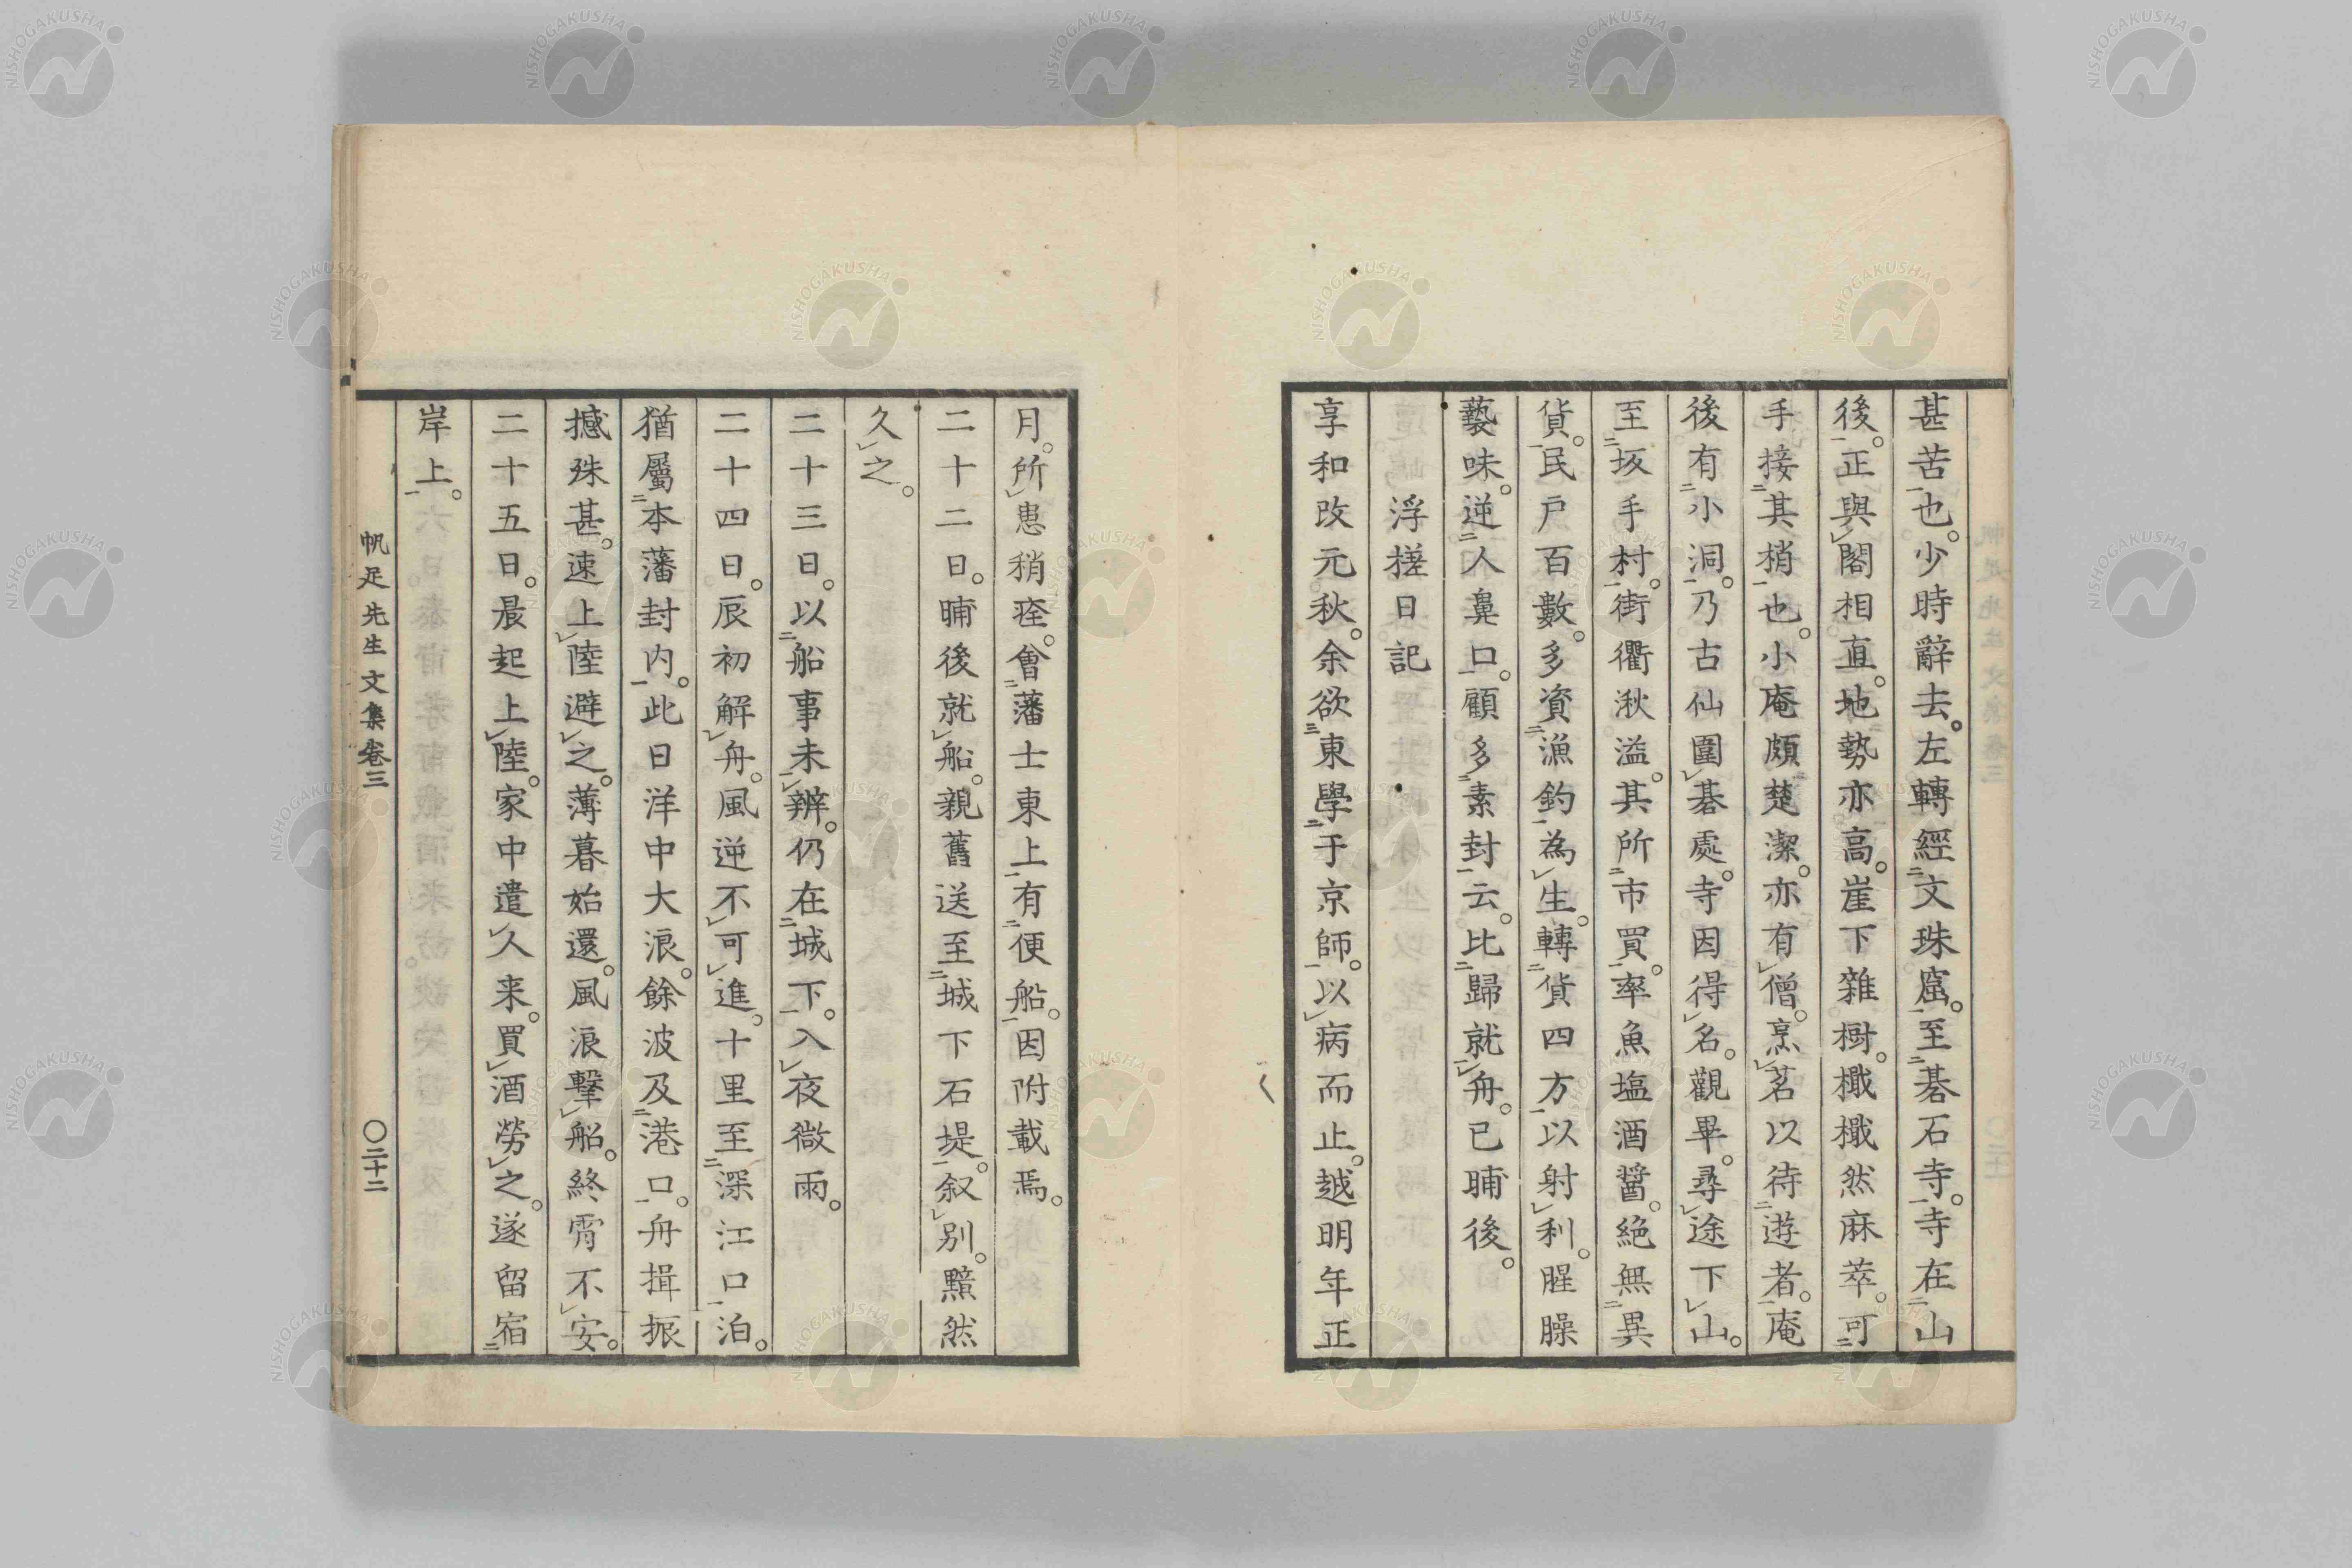 甚苦也。少時辭去。左轉經文珠窟。至碁石寺。寺在山
後。正與閣相直。地勢亦高。崖下雜樹。檝檝然麻萃。可
手接其梢也。小庵頗楚潔。亦有僧。烹茗以待遊者。庵
後有小洞。乃古仙圍碁處。寺因得名。觀畢。尋途下山。
至坂手村。街衢湫溢。其所市買。率魚塩酒醤。絕無異
貨。民戶百數。多資漁釣為生。轉貨四方以射利。腥臊
藝味。逆人鼻口。顧多素封云。比歸就舟。已晡後。
浮槎日記
享和改元秋。余欲東學于京師。以病而止。越明年正
月。所患稍痊。會藩士東上有便船。因附載焉。
二十二日。晡後就船。親舊送至城下石堤。叙別。黯然
久之。
二十三日。以船事未辨。仍在城下。入夜微雨。
二十四日。辰初解舟。風逆不可進。十里至深江口泊。
猶屬本藩封内。此日洋中大浪。餘波及港口。舟揖振
撼殊甚。速上陸避之。薄暮始還。風浪擊船。終宵不安。
二十五日。晨起上陸。家中遣人来。買酒勞之。遂留宿
岸上。
帆足先生文集卷三 〇二十二
NISHOGAKUSHA